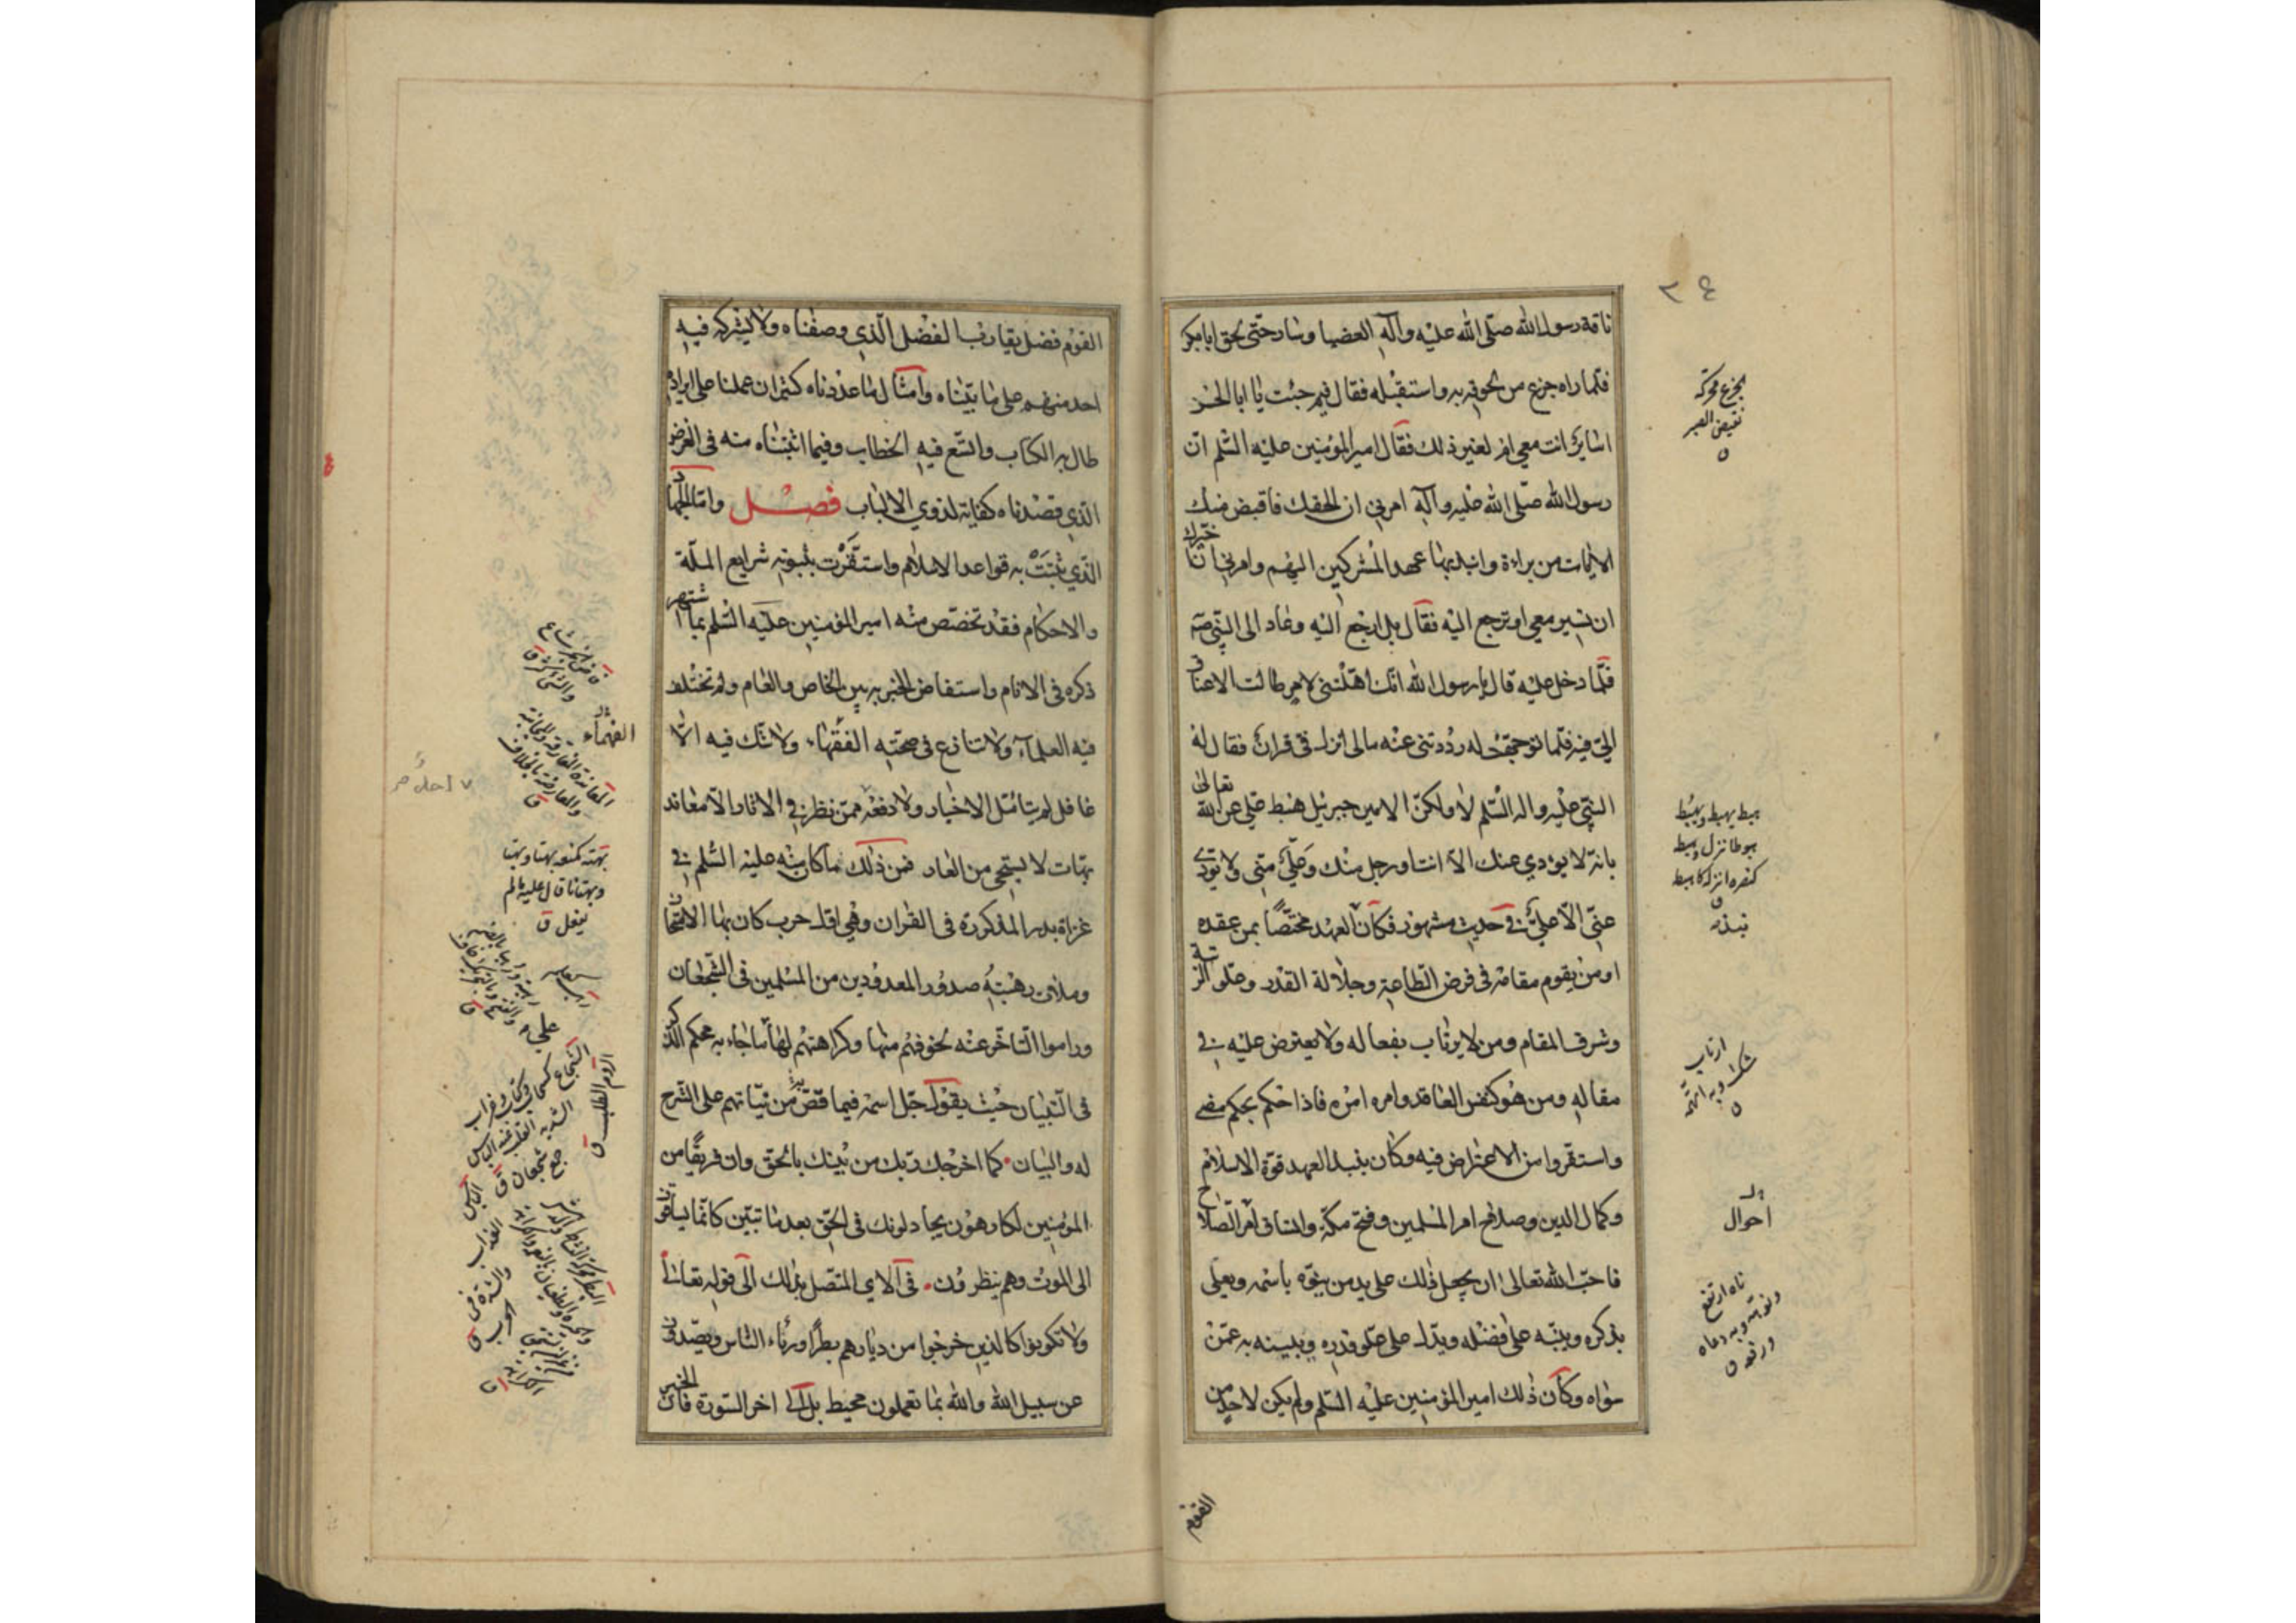 ٣٤
ناقة رسول الله صلّى الله عليه وآله العضبا وسار حتّى لحق ابا بكر
فلمّا راه جزع من لحوقه به واستقبله فقال فيم جئت يا ابا الحسن
اسائر انت معي ام لغير ذلك فقال امير المؤمنين عليه السّلم انّ
رسول الله صلّى الله عليه وآله امرني ان الحقك فاقبض منك
الايات من براءة وانبذ بها عهد المشركين اليهم وامرني ان اخيّرك
ان تسير معي او ترجع اليه فقال بل ارجع اليه وعاد الى النبّي صه
فلمّا دخل عليه قال يا رسول الله انّك اهّلتني لامر طالت الاعناق
اليّ فيه فلمّا توجّهت له رددتني عنه مالى انزل فىّ قران فقال له
النبّي عليه واله السّلم لا ولكنّ الامين جبرئيل هبط عليّ عن الله تعالى
بانّه لا يؤدي عنك الاّ انت او رجل منك وعليّ منّي ولا يؤدّي
عنّي الاّ عليّ في حديث مشهور فكان العهد مختصّاً بمن عقده
او من يقوم مقامه في فرض الطّاعة وجلالة القدر وعلو الرتبة
وشرف المقام ومن لا يرتاب بفعاله ولا يعترض عليه في
مقاله ومن هو كنفس العاقد وامره امره فاذا حكم بحكم مضى
واستقر وامن الاعتراض فيه وكان بنبذ العهد قوّة الاسلام
وكمال الدين وصلاح امر المسلمين وفتح مكّة واتساق امر الصّلاح
فاحبّ الله تعالى ان يجعل ذلك على يد من ينوّه باسمه ويعلى
بذكره وينبّه على فضله ويدلّ على علو قدره ويبينه به عمّن
سواه وكان ذلك امير المؤمنين عليه السّلم ولم يكن لاحد من
القوم
الجزع محركة
نقيض الصبر
هبط يهبط ويهبُط
هبوطا نزل وهبط
كنصره انزله كاهبط
نبذه
ارتاب
شك وبه اتهمه
احوال
ناه ارتفع
ونوّهته وبه دعاه
ورفعه ق
القوم فضل يقارب الفضل الّذي وصفناه ولا يشركه فيه
احد منهم على ما بيّناه وامثال ما عدّدناه كثير ان عملنا على ايراده
طال به الكتاب واتّسع فيه الخطاب وفيما اثبتناه منه في الغرض
الّذي قصدناه كفاية لذوي الالباب فصل وامّا الجهاد
الّذي ثبتت به قواعد الاسلام واستقّرت بثبوته شرايع الملّة
والاحكام فقد تخصّص منه امير المؤمنين عليه السّلم بما اشتهر
ذكره في الانام واستفاض الخبر به بين الخاص والعام ولم تختلف
فيه العلماء ولا تنازع في صحّته الفقهاء ولا شك فيه الاّ
غافل لم يتأمّل الاخبار ولا دفعه ممّن نظر في الاثار الاّ معاند
بهّات لا يستحي من العار فمن ذلك ما كان منه عليه السّلم في
غزاة بدر المذكورة في القران وهي اوّل حرب كان بها الامتحان
وملأت رهبته صدور المعدودين من المسلمين في الشّجعان
وراموا التّاخّر عنه لخوفهم منها وكراهتهم لها على ما جاء به محكم الذّكر
في التّبيان حيث يقول جلّ اسمه فيما قصّ به من نبّاتهم على الشّرح
له والبيان كما اخرجك ربّك من بيتك بالحق وان فريقًا من
المؤمنين لكارهون يجادلونك في الحقّ بعد ما تبيّن كانّما يساقون
الى الموت وهم ينظرون في الاي المتّصل بذلك الى قوله تعالى
ولا تكونوا كالذين خرجوا من ديارهم بطرًا ورئاء النّاس ويصدّون
عن سبيل الله والله بما يعملون محيط بل الى اخر السّورة فانّ الخبر
الفهماء
المعاندة المفارقة والمجانبة
والمعارضة بالخلاف
بهته كمنعه بهتا وبهتا
وبهتانا قال عليه ما لم
يفعل ق
الروم الطلب ق
العذاب
والشدة في
الحرب ق